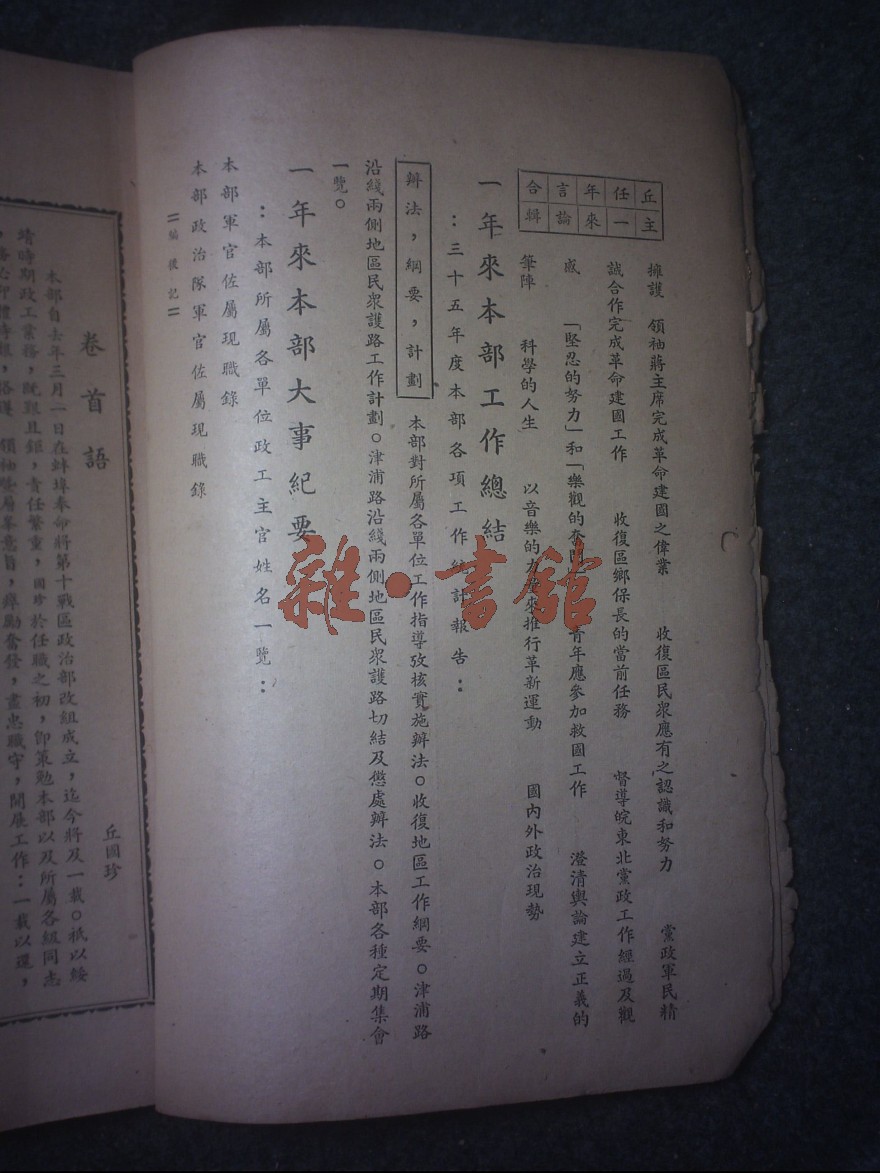 丘主任一年來言論合輯
擁護 領袖蔣主席完成革命建國之偉業 收復區民衆應有之認識和努力 黨政軍民精
誠合作完成革命建國工作 收復區鄉保長的當前任務 督導皖東北黨政工作經過及觀
感 「堅忍的努力」和「樂觀的奮 青年應參加救國工作 澄清輿論建立正義的
筆陣 科學的人生 以音樂的 來推行革新運動 國內外政治現勢
一年來本部工作總結
：三十五年度本部各項工作統計報告：
辦法，綱要，計劃
本部對所屬各單位工作指導攷核實施辦法。收復地區工作綱要。津浦路
沿綫兩側地區民衆護路工作計劃。津浦路沿綫兩側地區民衆護路切結及懲處辦法。本部各種定期集會
一覽。
一年來本部大事紀要
：本部所屬各單位政工主官姓名一覽：
本部軍官佐屬現職錄
本部政治隊軍官佐屬現職錄
＝編後記＝
卷首語
丘國珍
本部自去年三月一日在蚌埠奉命將第十戰區政治部改組成立，迄今將及一載。祇以綏
靖時期政工業務，既艱且鉅，責任繁重，國珍於任職之初，即策勉本部以及所屬各級同志
領袖 層峯意旨，踔勵奮發，盡忠職守，開展工作：一載以還，
雜·書館